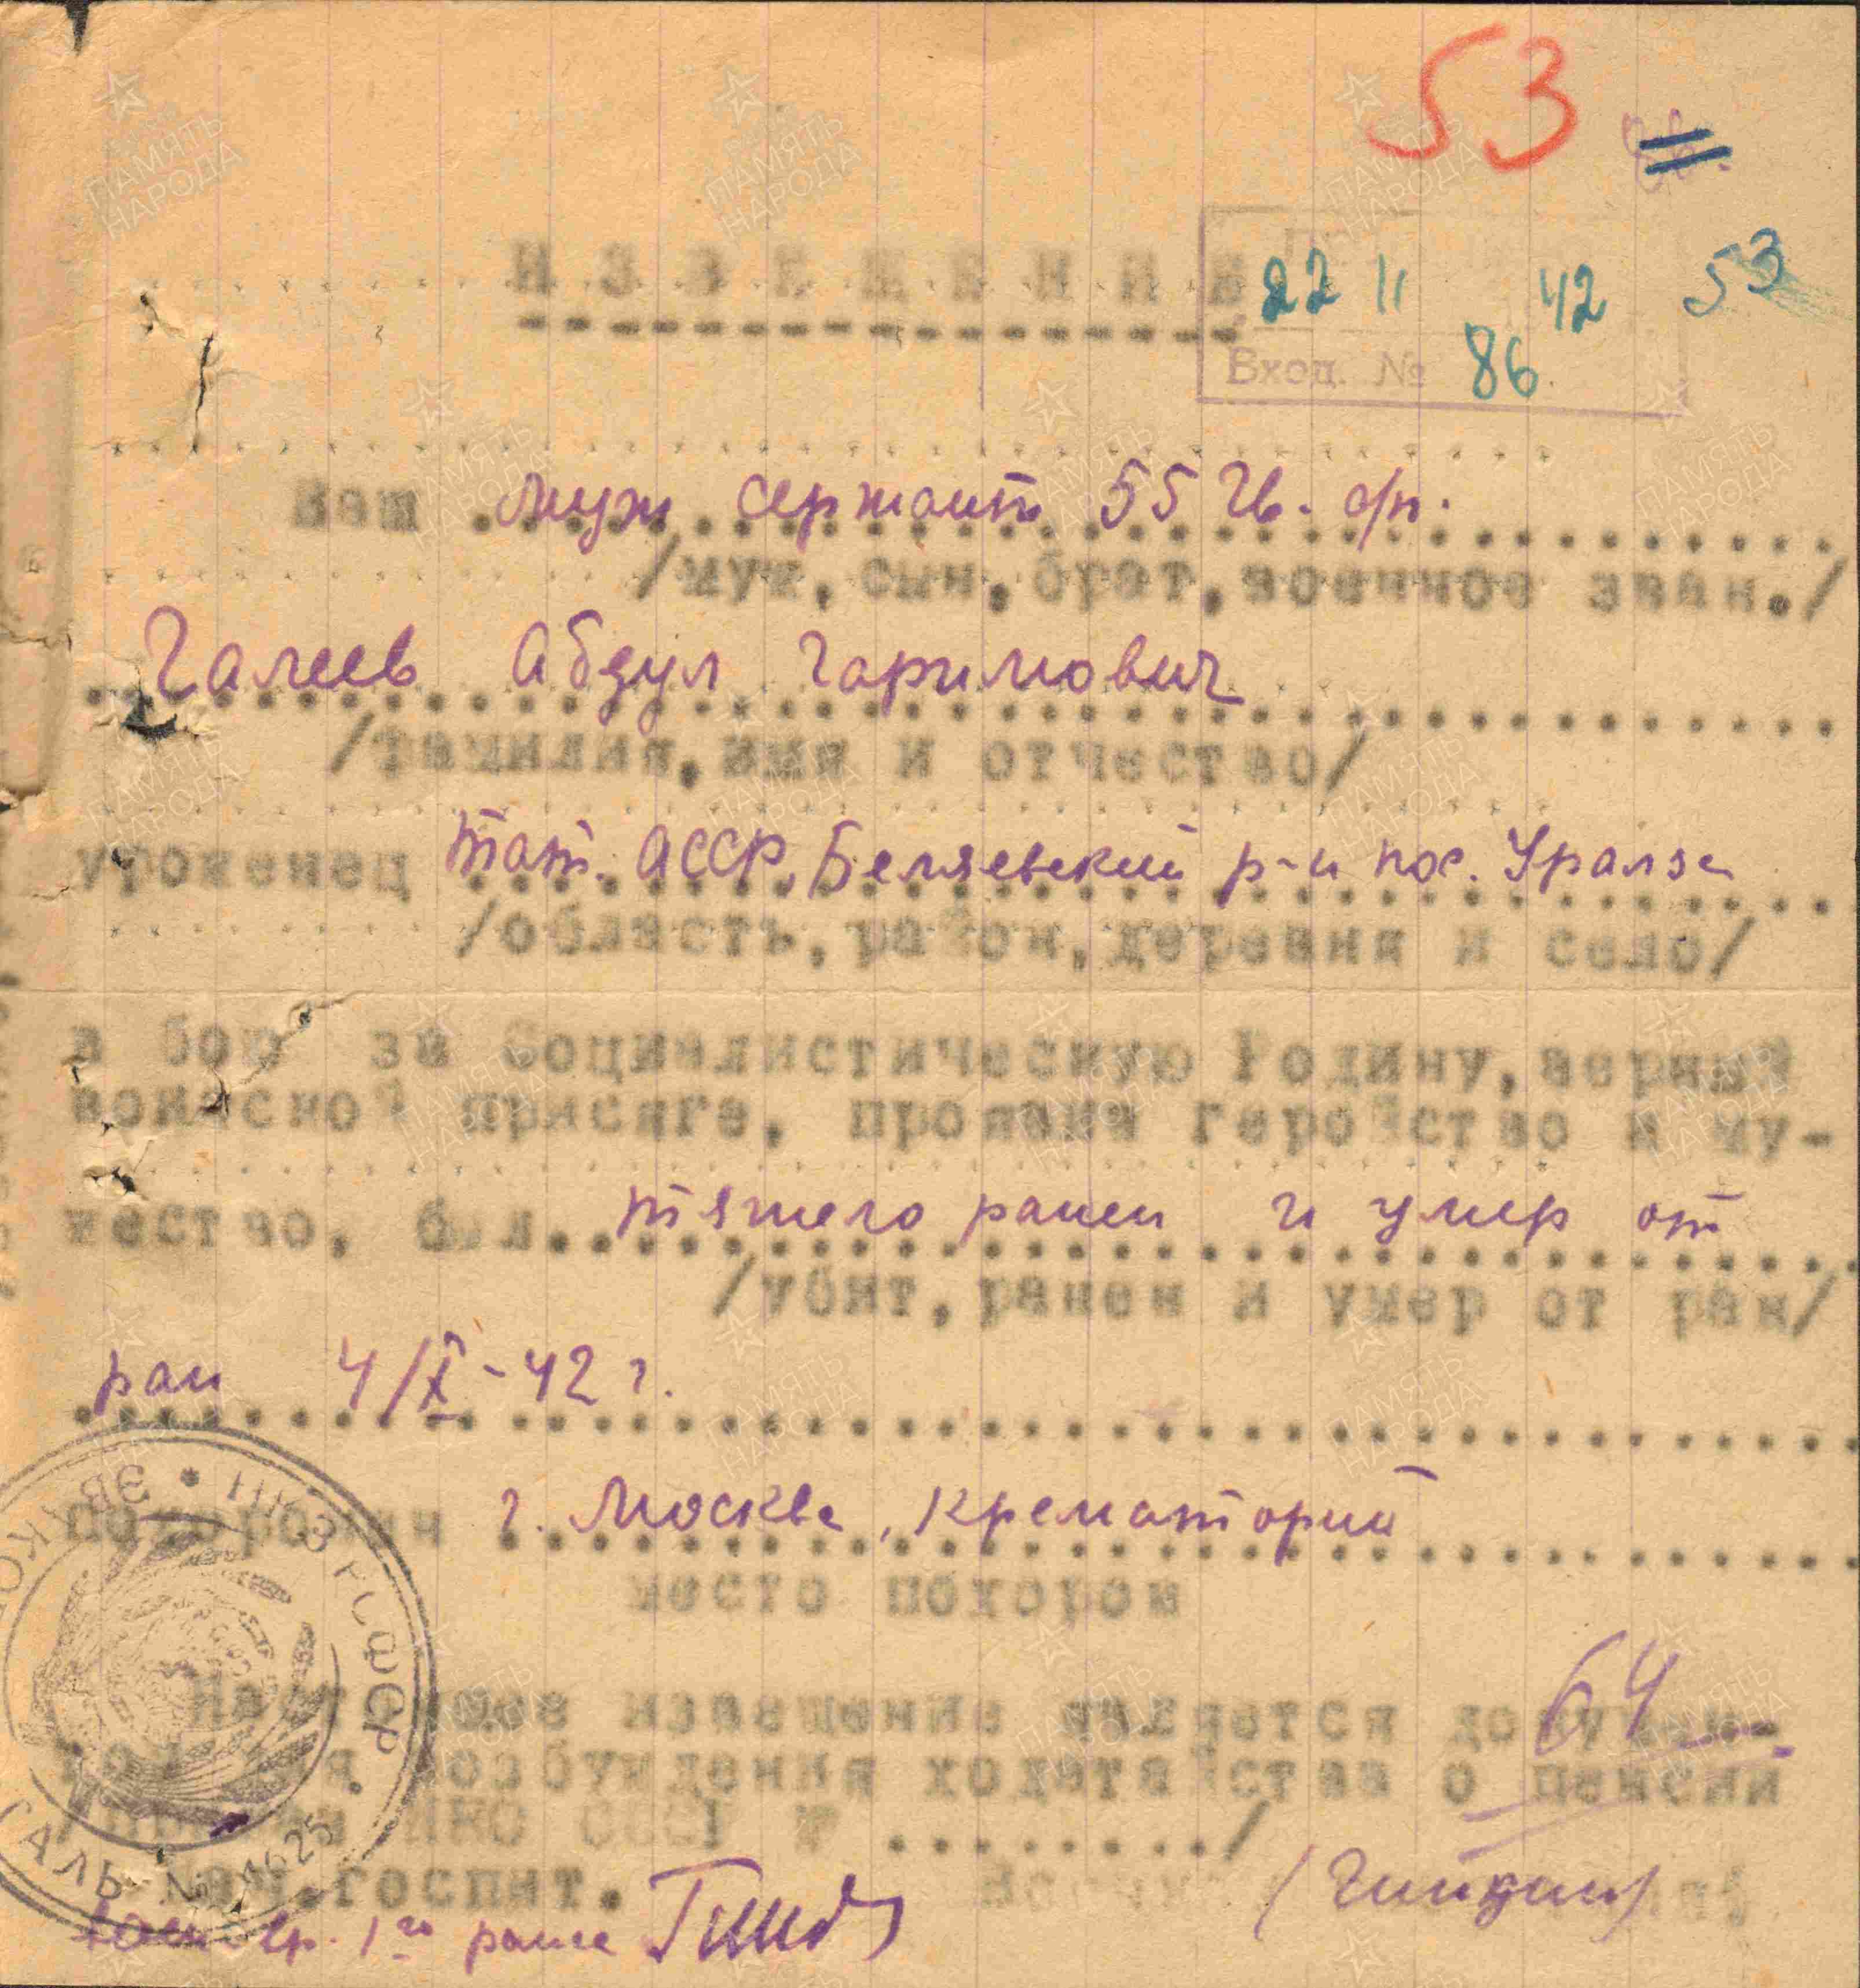 53
ИЗВЕЩЕНИЕ
22 11 42 53
Вход. № 86
Ваш муж сержант 55 Гв. с/п.
/муж, сын, брат, военное зван./
Галеев Абдул Гаримович
/фамилия, имя и отчество/
уроженец Тат. АССР, Беляевский р-н пос. Уралзе
/область, район, деревня и село/
в бою за Социалистическую Родину, верный
воинской присяге, проявив геройство и му-
жество, был тяжело ранен и умер от
/убит, ранен и умер от ран/
ран 4/X-42 г.
похоронен г. Москва, Крематорий
место похорон
64
Настоящее извещение является докумен-
том для возбуждения ходатайства о пенсии
/приказ НКО СССР № ......../
Нач. госпит.
вр. 1го ранга
НКЗ РСФСР
1625
ПАМЯТЬ НАРОДА